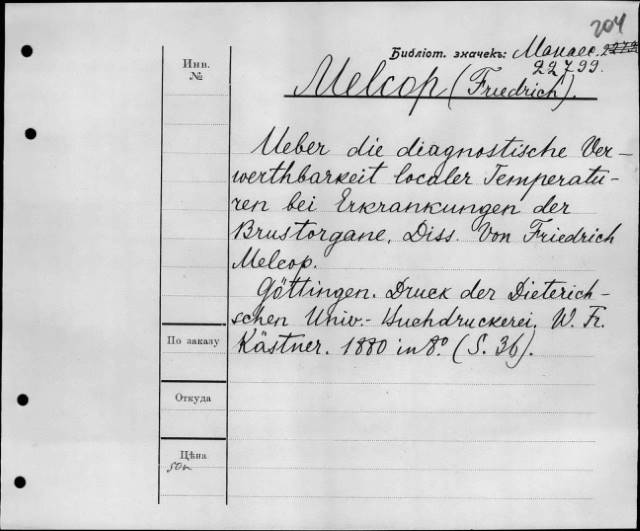 204
Библіот. значекъ: Манас.
22799.
Инв.
№
Melcop (Friedrich).
Ueber die diagnostische Ver-
werthbarkeit localer Temperatu-
ren bei Erkrankungen der
Brustorgane. Diss. Von Friedrich
Melcop.
Göttingen. Druck der Dieterich-
schen Univ.- Buchdruckerei. W. Fr.
Kästner. 1880 in 8.º (S. 36).
По заказу
Откуда
Цѣна